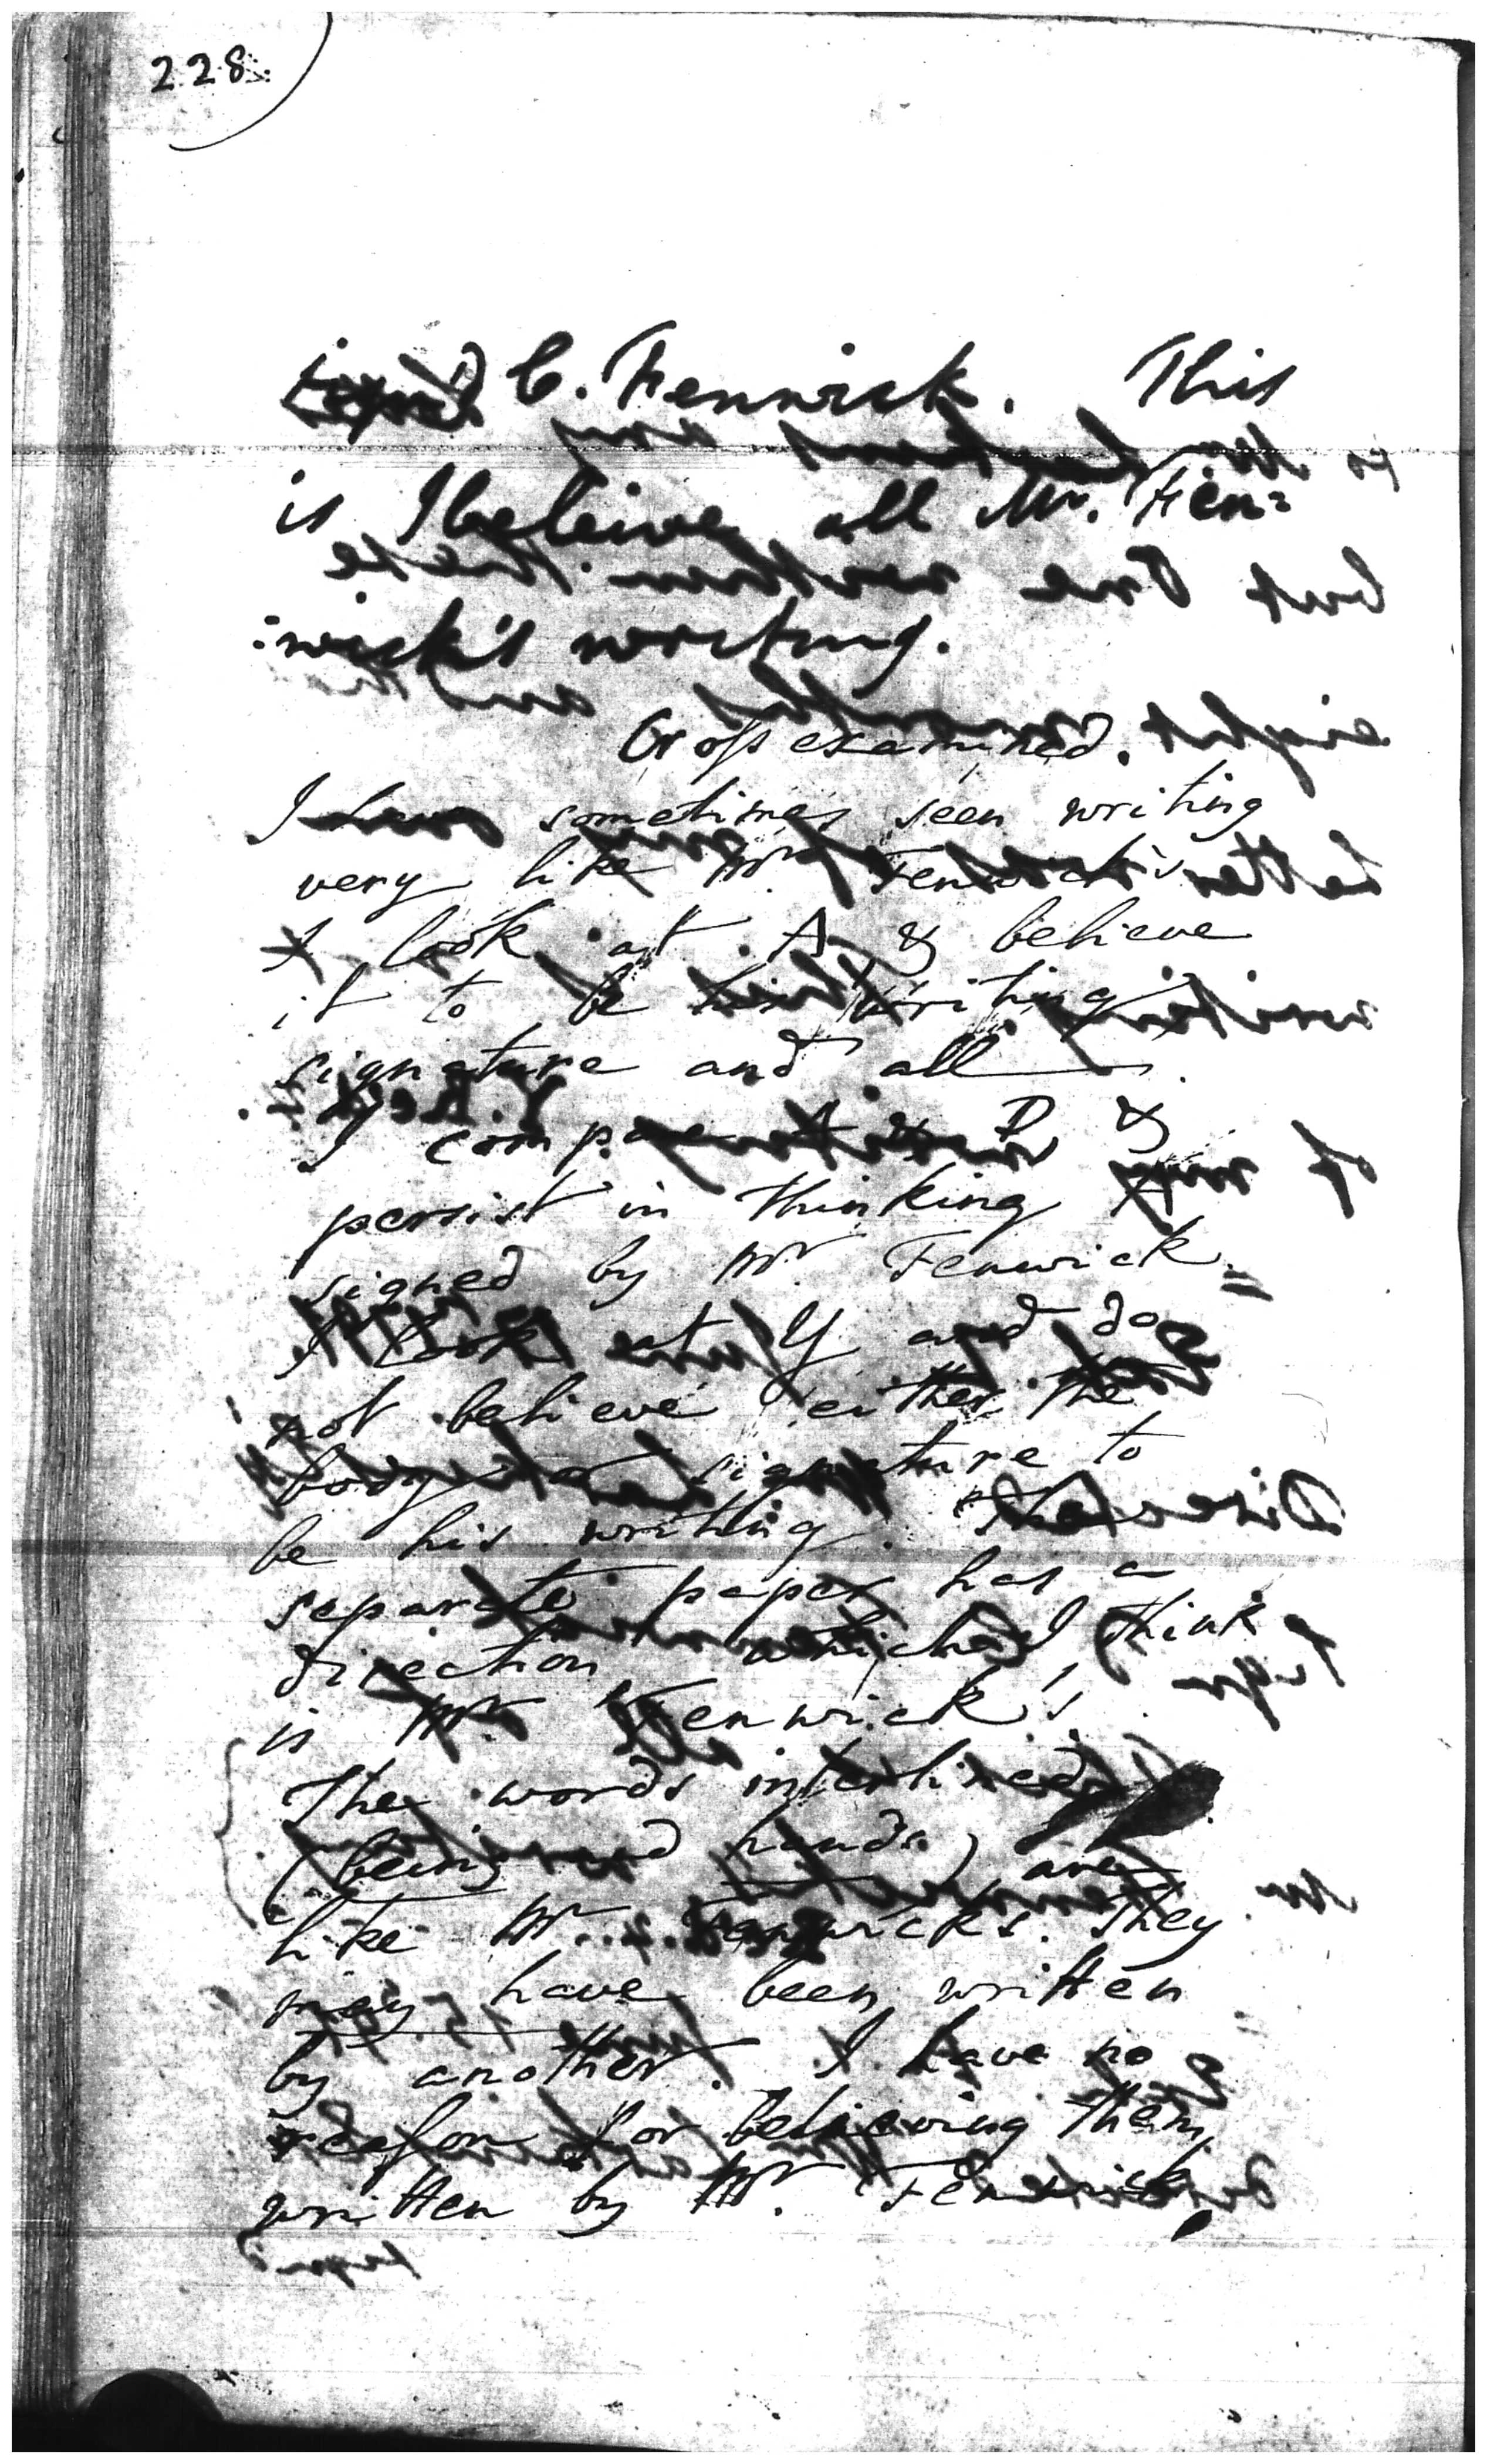 228
C. Fenwick. This
is I beleive all Mr. Fen=
:wick's writing.
Cross examined.
I have sometimes seen writing
very like Mr. Fenwick's
I look at A & believe
it to be his writing
signature and all
I compare A & D &
persist in thinking
signed by Mr. Fenwick =
I look at Y and do
not believe either the
body or signature to
be his writing. The
separate paper has a
direction which I think
is Mr. Fenwick's.
The words interlined
(being and hands) are
like Mr. Fenwicks. They
may have been written
by another. I have no
reason for believing them
written by Mr. Fenwick